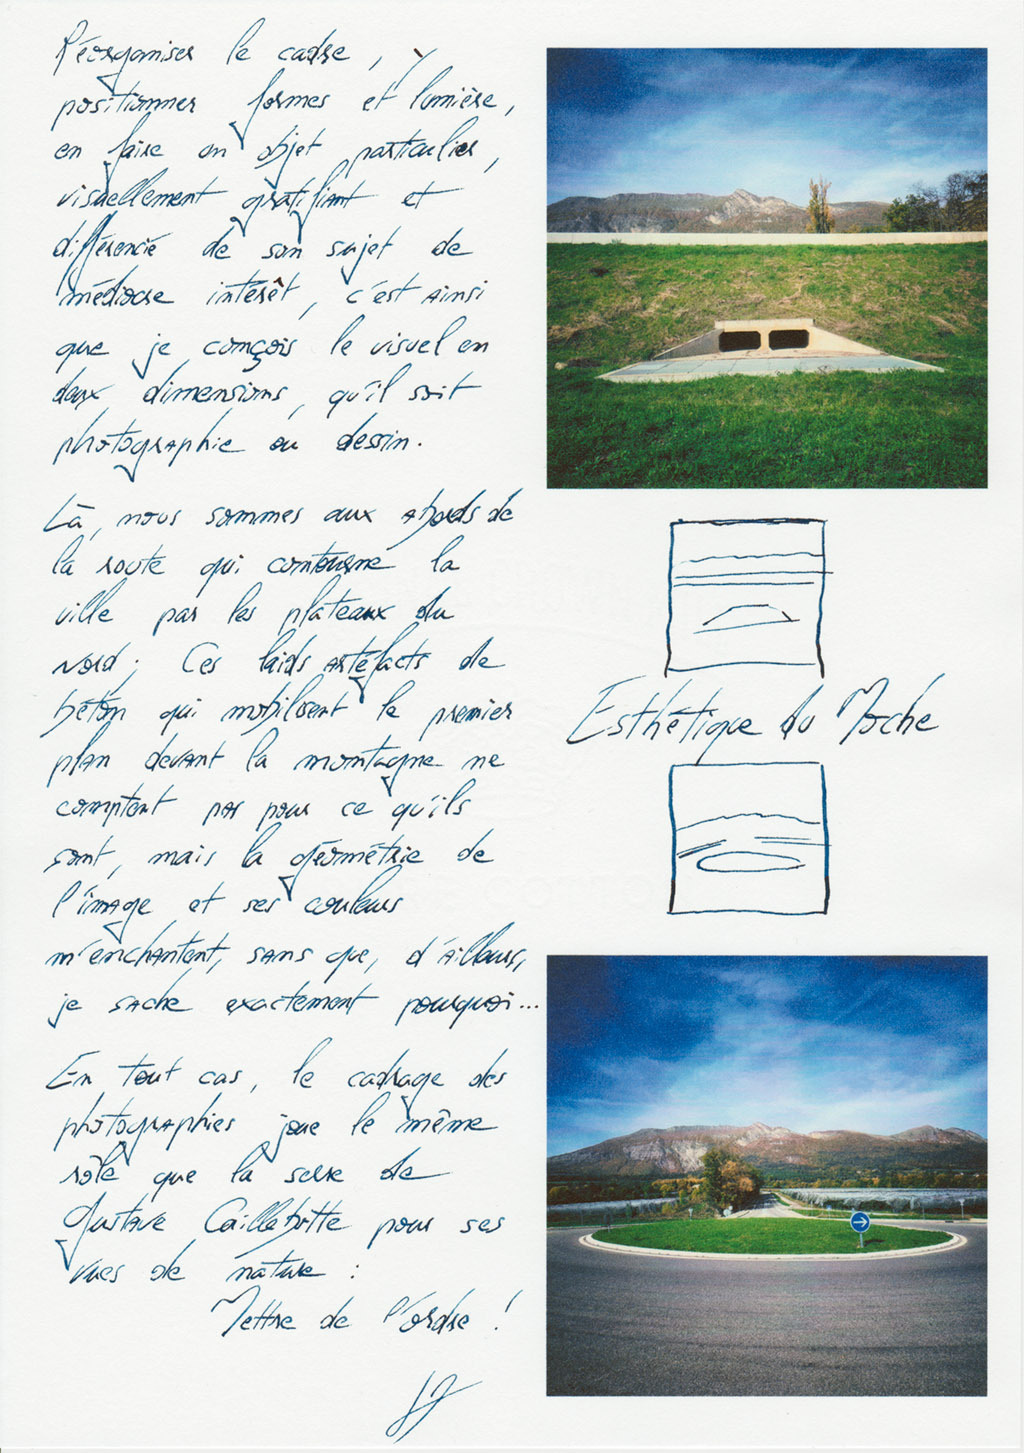 Réorganiser le cadre, y
positionner formes et lumière,
en faire un objet particulier,
visuellement gratifiant et
différencié de son sujet de
médiocre intérêt, c'est ainsi
que je conçois le visuel en
deux dimensions, qu'il soit
photographie ou dessin.
Là, nous sommes aux abords de
la route qui contourne la
ville par les plateaux du
Nord; Ces laids artéfacts de
béton qui mobilisent le premier
plan devant la montagne ne
comptent pas pour ce qu'ils
sont, mais la géométrie de
l'image et ses couleurs
m'enchantent, sans que, d'ailleurs,
je sache exactement pourquoi...
En tout cas, le cadrage des
photographies joue le même
rôle que la serre de
Gustave Caillebotte pour ses
vues de nature :
Mettre de l'ordre !
Esthétique du Moche